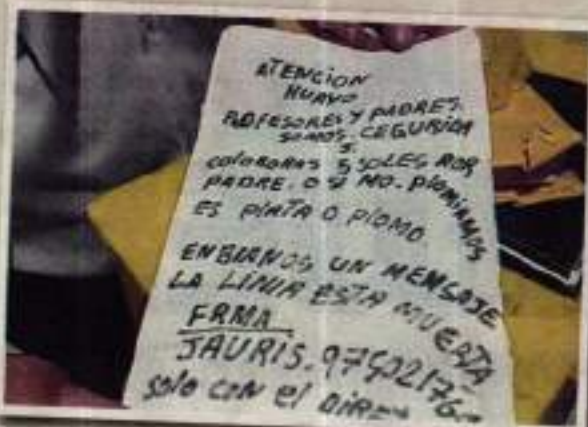 ATENCION
HUAYO
PROFESORES Y PADRES.
SOMOS. CEGURIDA
S.
COLOBORAN 5 SOLES POR
PADRE. O SI NO. PLOMIAMOS
ES PLATA O PLOMO
ENBIENOS UN MENSAJE
LA LINIA ESTA MUERTA
FRMA
JAURIS.
SOLO CON EL